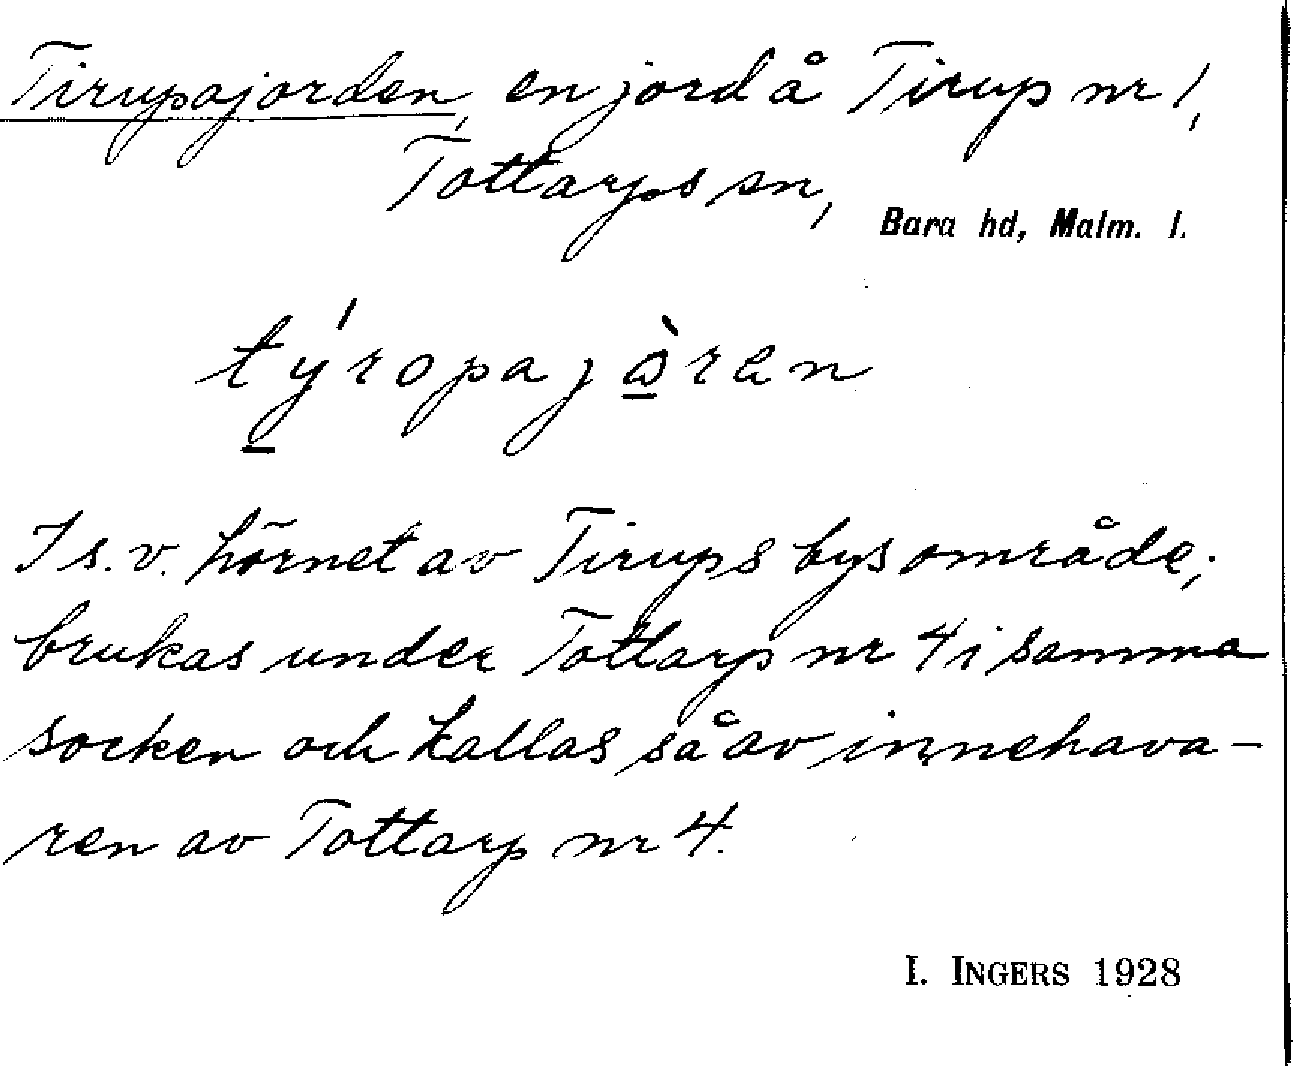 Tirupajorden, en jord å Tirup nr 1,
Tottarps sn,
Bara hd, Malm. l.
týropajò̱ran
I s.v. hörnet av Tirups bys område;
brukas under Tottarp nr 4 i samma
socken och kallas så av innehava-
ren av Tottarp nr 4.
I. INGERS 1928